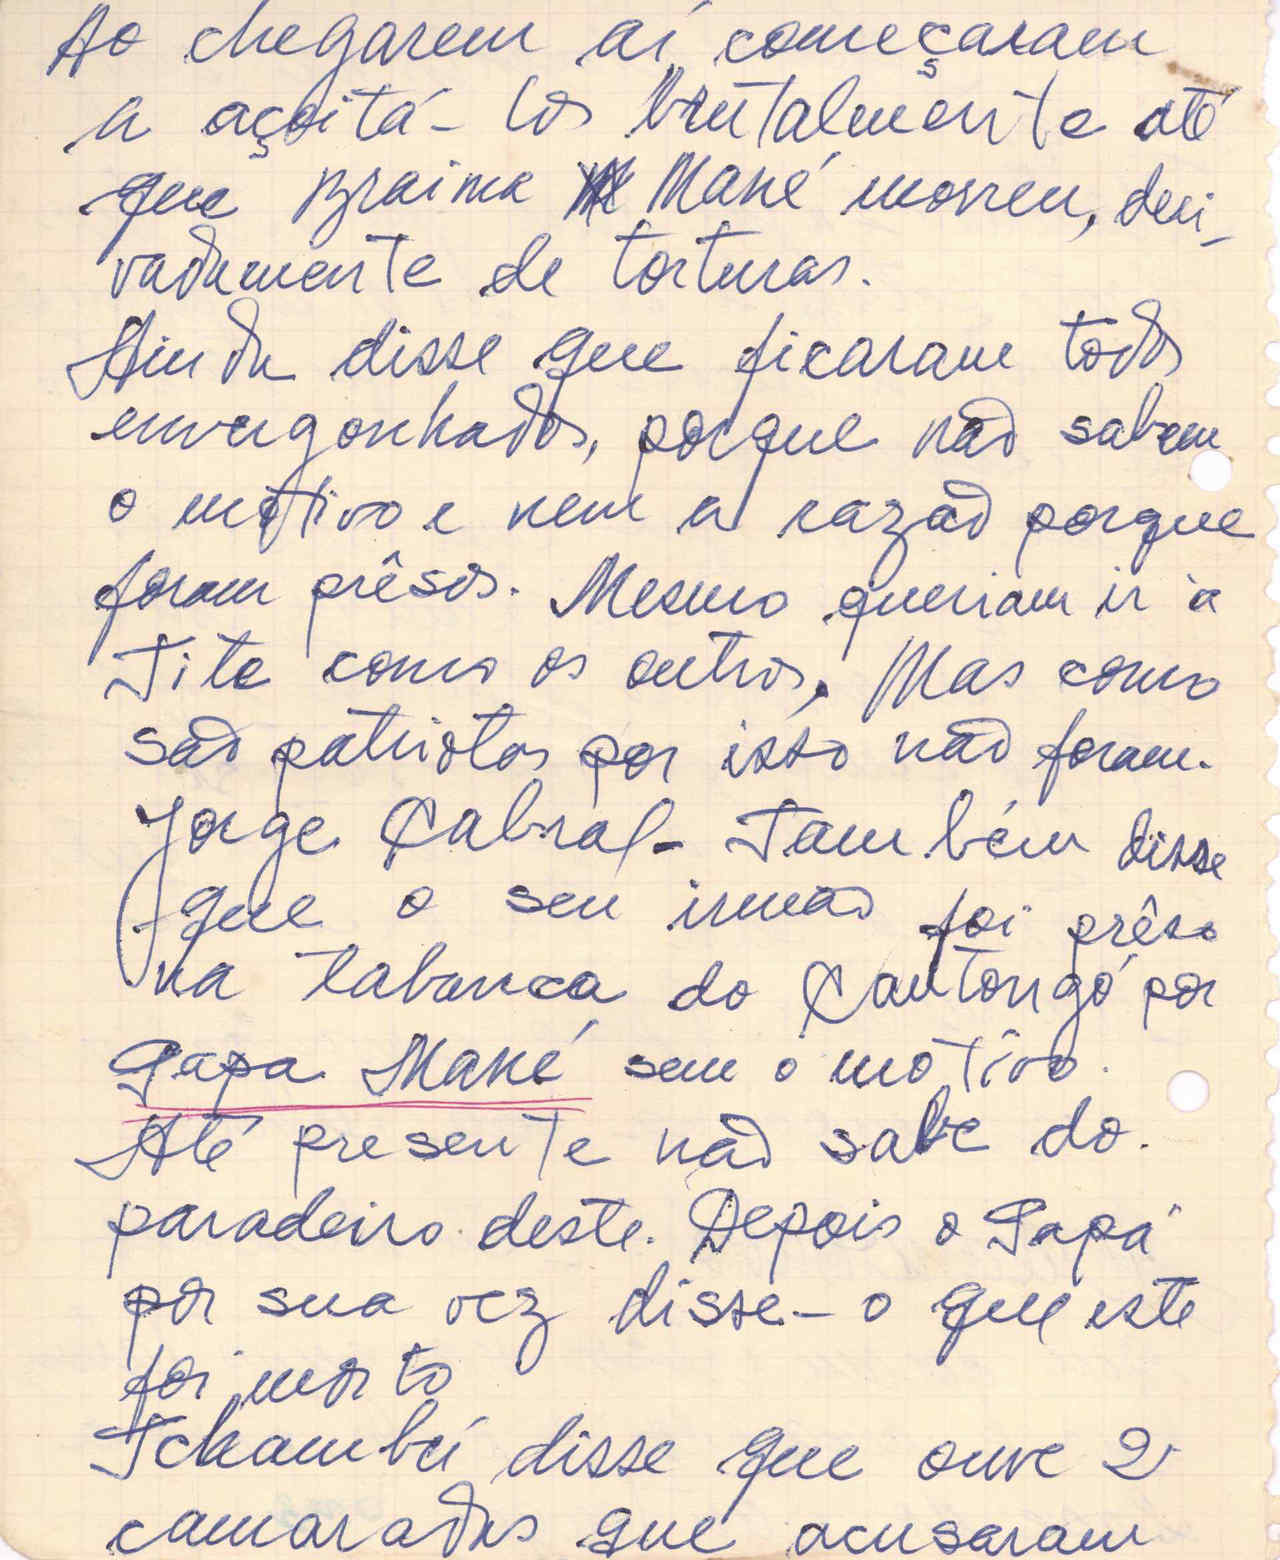 Ao chegarem aí, começaram
a açoitá-los brutalmente até
que Braima Mané morreu, deri-
vadamente de torturas.
Ainda disse que ficaram todos
envergonhados, porque não sabem
o motivo e nem a razão porque
foram prêsos. Mesmo queriam ir à
Tite como os outros, Mas como
são patriotas por isso não foram.
Jorge Cabral - Também disse
que o seu irmão foi prêso
na tabanca do Cantongó por
Papa Mané sem o motivo.
Até presente não sabe do
paradeiro deste. Depois o Papá
por sua vez disse-o que este
foi morto
Tchambú disse que ouve 2
camaradas que acusaram